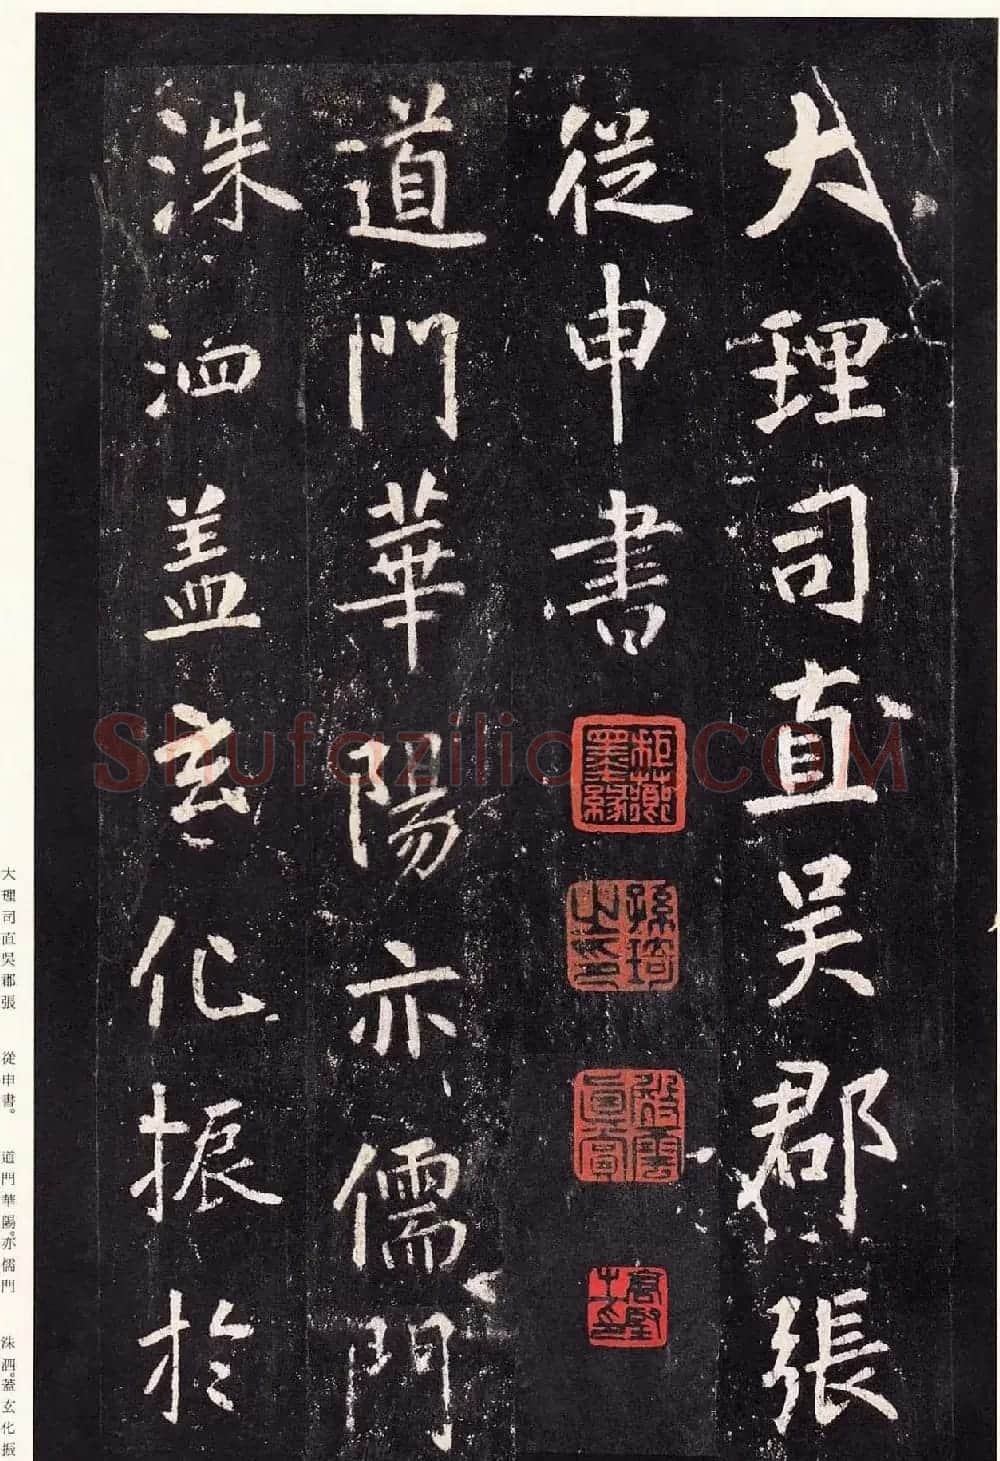 大理司直吳郡張
從申書
道門華陽亦儒門
洙泗蓋玄化振於
孫琦之印
大理司直吳郡張 從申書。 道門華陽。亦儒門 洙泗。蓋玄化振
Shufaziliao.COM